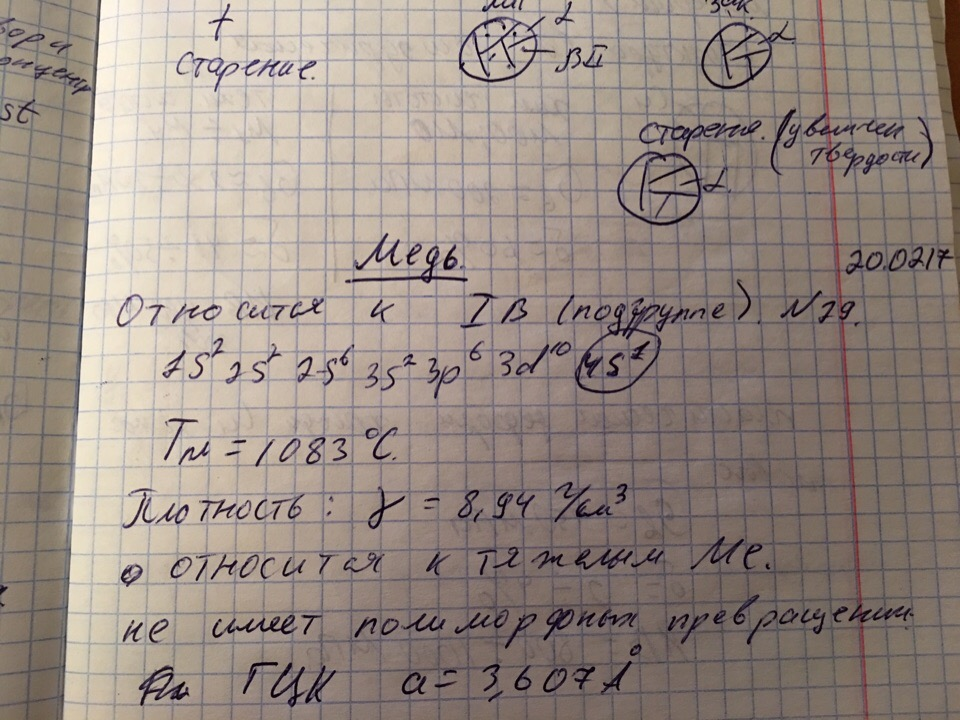 st
+
старение.
α
ВII
зак.
α
старение. (увеличен
твердости)
α
Медь.
20.0217
Относится к I В (подгруппе). N29.
1S² 2S² 2S⁶ 3S² 3p⁶ 3d¹⁰ 4S¹
Тпл = 1083°С.
Плотность: γ = 8,94 г/см³
относится к тяжелым Ме.
не имеет полиморфных превращений.
ГЦК a = 3,607 Å